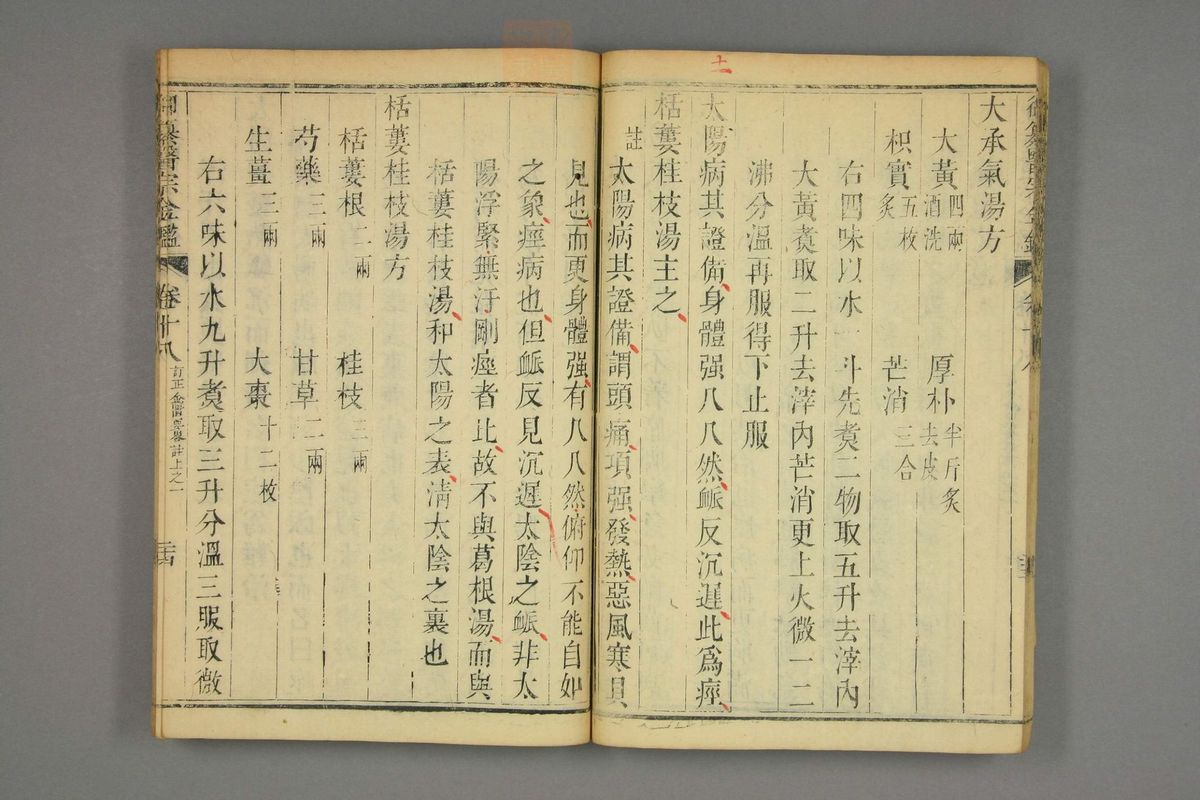 十一
大承氣湯方
大黃四兩酒洗 厚朴半斤炙去皮
枳實五枚炙 芒消三合
右四味以水一斗先煑二物取五升去滓內
大黃煑取二升去滓內芒消更上火微一二
沸分溫再服得下止服
太陽病其證備身體强八八然䘑反沉遲此爲痙
栝蔞桂枝湯主之
註太陽病其證備謂頭痛項强發熱惡風寒具
見也而更身體强有八八然俯仰不能自如
之象痙病也但䘑反見沉遲太陰之䘑非太
陽浮緊無汗剛痙者比故不與葛根湯而與
栝蔞桂枝湯和太陽之表淸太陰之裏也
栝蔞桂枝湯方
栝蔞根二兩 桂枝三兩
芍藥三兩 甘草二兩
生薑三兩 大棗十二枚
右六味以水九升煑取三升分溫三服取微
御纂醫宗金鑑 卷十八 訂正金匱要畧註上之一 二十四